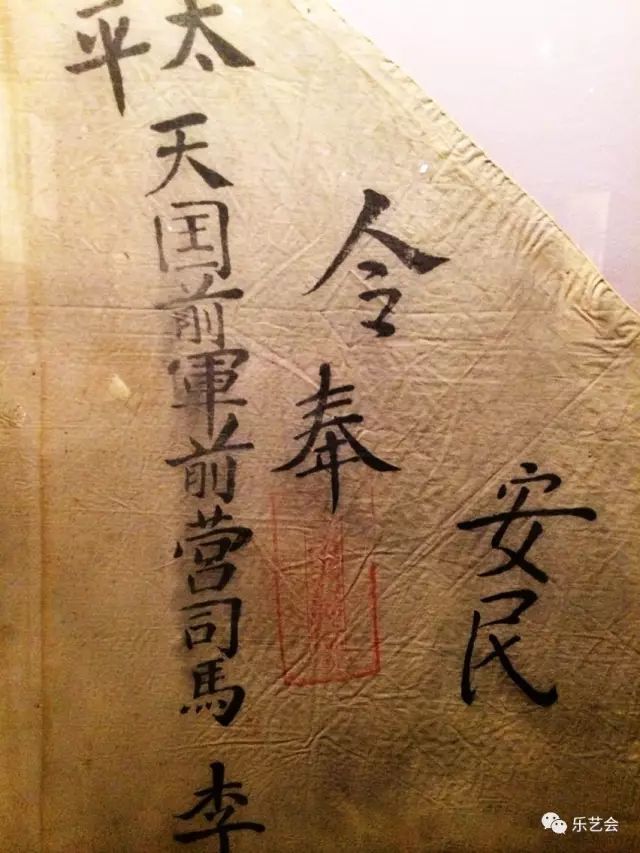 安民
令奉
太平
天囯前軍前营司馬 李
乐艺会